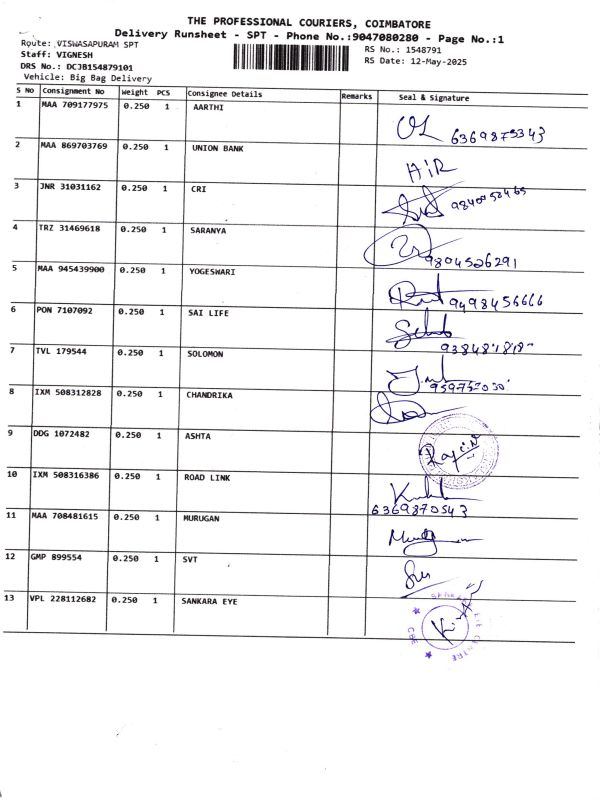 THE PROFESSIONAL COURIERS, COIMBATORE
Delivery Runsheet - SPT - Phone No.:9047080280 - Page No.:1
Route: VISWASAPURAM SPT
Staff: VIGNESH
DRS No.: DCJB154879101
Vehicle: Big Bag Delivery
RS No.: 1548791
RS Date: 12-May-2025
S No Consignment No Weight PCS Consignee Details Remarks Seal & Signature
1 MAA 709177975 0.250 1 AARTHI
6369875343
2 MAA 869703769 0.250 1 UNION BANK
AIR
3 JNR 31031162 0.250 1 CRI
4 TRZ 31469618 0.250 1 SARANYA
9804526291
5 MAA 945439900 0.250 1 YOGESWARI
9498456666
6 PON 7107092 0.250 1 SAI LIFE
7 TVL 179544 0.250 1 SOLOMON
8 IXM 508312828 0.250 1 CHANDRIKA
9 DDG 1072482 0.250 1 ASHTA
10 IXM 508316386 0.250 1 ROAD LINK
6369870543
11 MAA 708481615 0.250 1 MURUGAN
12 GMP 899554 0.250 1 SVT
13 VPL 228112682 0.250 1 SANKARA EYE
SANKARA EYE CENTRE
CBE